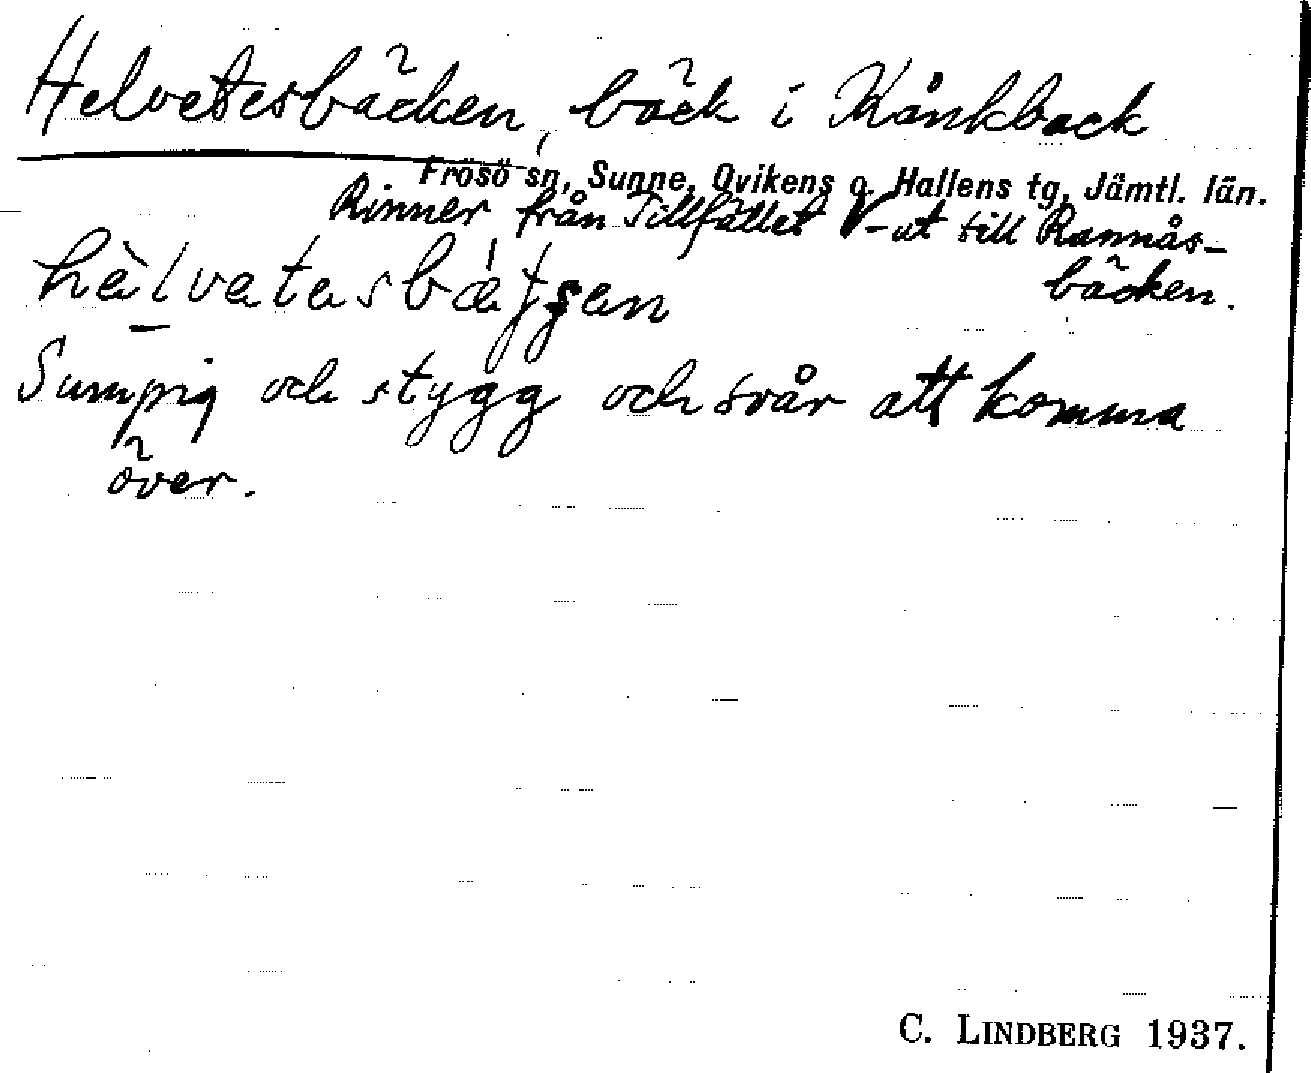 Helvetesbäcken, bäck i Månkback
Frösö sn, Sunne, Ovikens o. Hallens tg, Jämtl. län.
Rinner från Tillfället V-ut till Rannås-
bäcken.
Sumpig och stygg och svår att komma
över.
C. LINDBERG 1937.